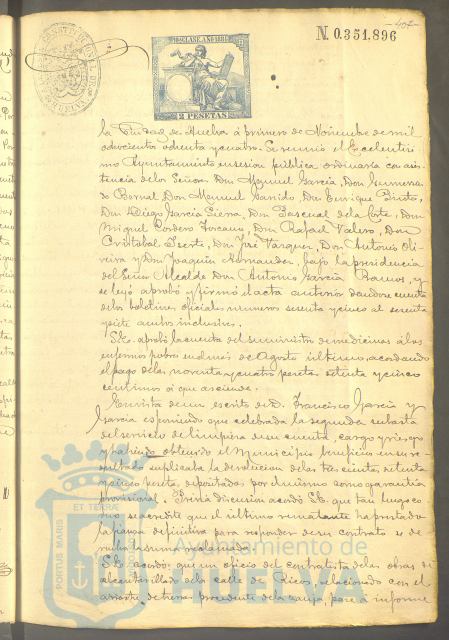 -407-
N. 0.351.896
10ª CLASE. AÑO 1884
2 PESETAS
la Ciudad de Huelva á primero de Noviembre de mil
ochocientos ochenta y cuatro. Se reunió el Excelentísi
mo Ayuntamiento en sesion pública ordinaria con asis
tencia de los Señores Don Manuel García, Don Gumersin
do Bernal, Don Manuel Garrido, Don Enrique Pinto,
Don Diego García Sierra, Don Pascual de la Corte, Don
Miguel Cordero Toscano, Don Rafael Valero, Don
Cristobal Iserte, Don José Vazquez, Don Antonio Oli
veira y Don Joaquin Hernandez, bajo la presidencia
del Señor Alcalde Don Antonio García Ramos, y
se leyó aprobó y firmó el acta anterior dandose cuenta
de los boletines oficiales numeros sesenta y cinco al sesenta
y siete ambos inclusives.
S. E. aprobó la cuenta del suministro de medicinas á los
enfermos pobres en el mes de Agosto último, acordando
el pago de las noventa y cuatro pesetas setenta y cinco
centimos á que asciende.
En vista de un escrito de D. Francisco García y
García exponiendo que celebrada la segunda subasta
del servicio de limpieza de su cuenta, cargo y riesgo
y habiendo obtenido el Municipio beneficios en su re
sultado suplicaba la devolucion de las trescientas setenta
y cinco pesetas depositadas por el mismo como garantía
provisional. Prévia discusion acordó S. E. que tan luego co
mo se acredite que el último rematante ha prestado
la fianza definitiva para responder de su contrato se de
vuelva la suma reclamada.
S. E. acordó: que un oficio del contratista de las obras de
alcantarillado de la calle de Ricos, relacionado con el
arrastre de tierras procedente de la zanja, pase á informe
PORTUS MARIS
ET TERRÆ
Ayuntamiento de
HUELVA